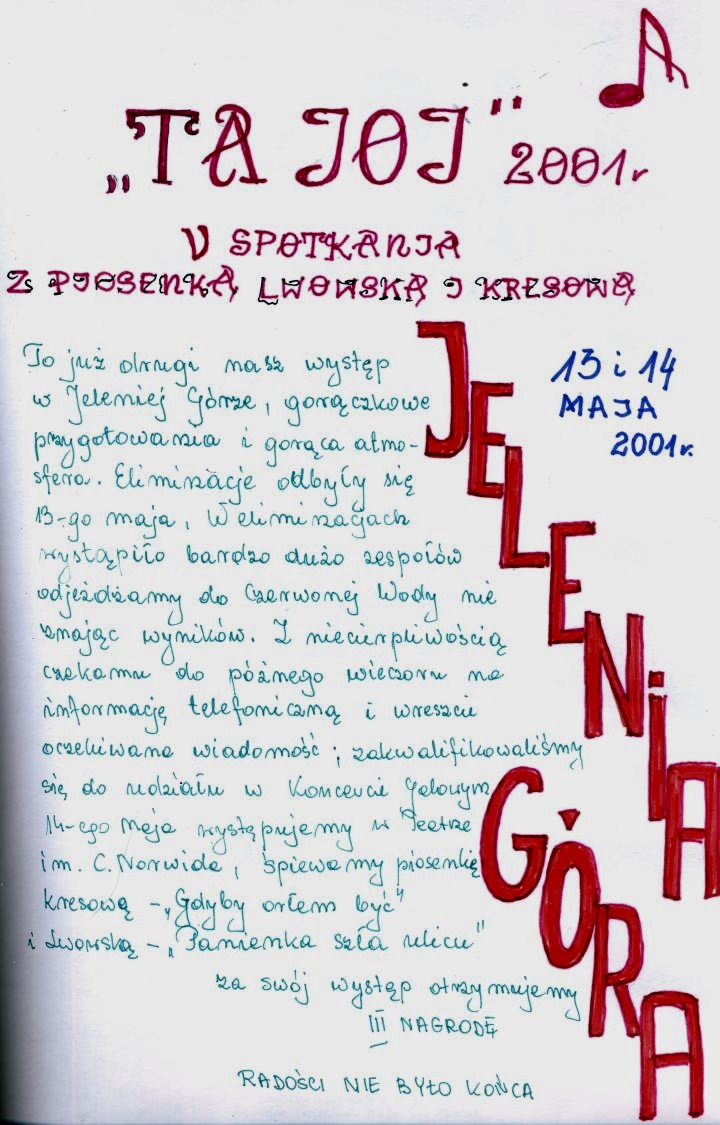 „TA JOJ" 2001r
V SPOTKANIA
Z PIOSENKĄ LWOWSKĄ I KRESOWĄ
13 i 14
MAJA
2001r.
JELENIA
GÓRA
To już drugi nasz występ
w Jeleniej Górze, gorączkowe
przygotowania i gorąca atmo-
sfera. Eliminacje odbyły się
13-go maja, W eliminacjach
wystąpiło bardzo dużo zespołów
odjeżdżamy do Czerwonej Wody nie
znając wyników. Z niecierpliwością
czekamy do późnego wieczoru na
informację telefoniczną i wreszcie
oczekiwana wiadomość; zakwalifikowaliśmy
się do udziału w Koncercie Galowym
14-ego maja występujemy w Teatrze
im. C. Norwida, śpiewamy piosenkę
kresową - „Gdyby orłem być"
i lwowską - „Panienka szła ulicu"
za swój występ otrzymujemy
III NAGRODĘ
RADOŚCI NIE BYŁO KOŃCA